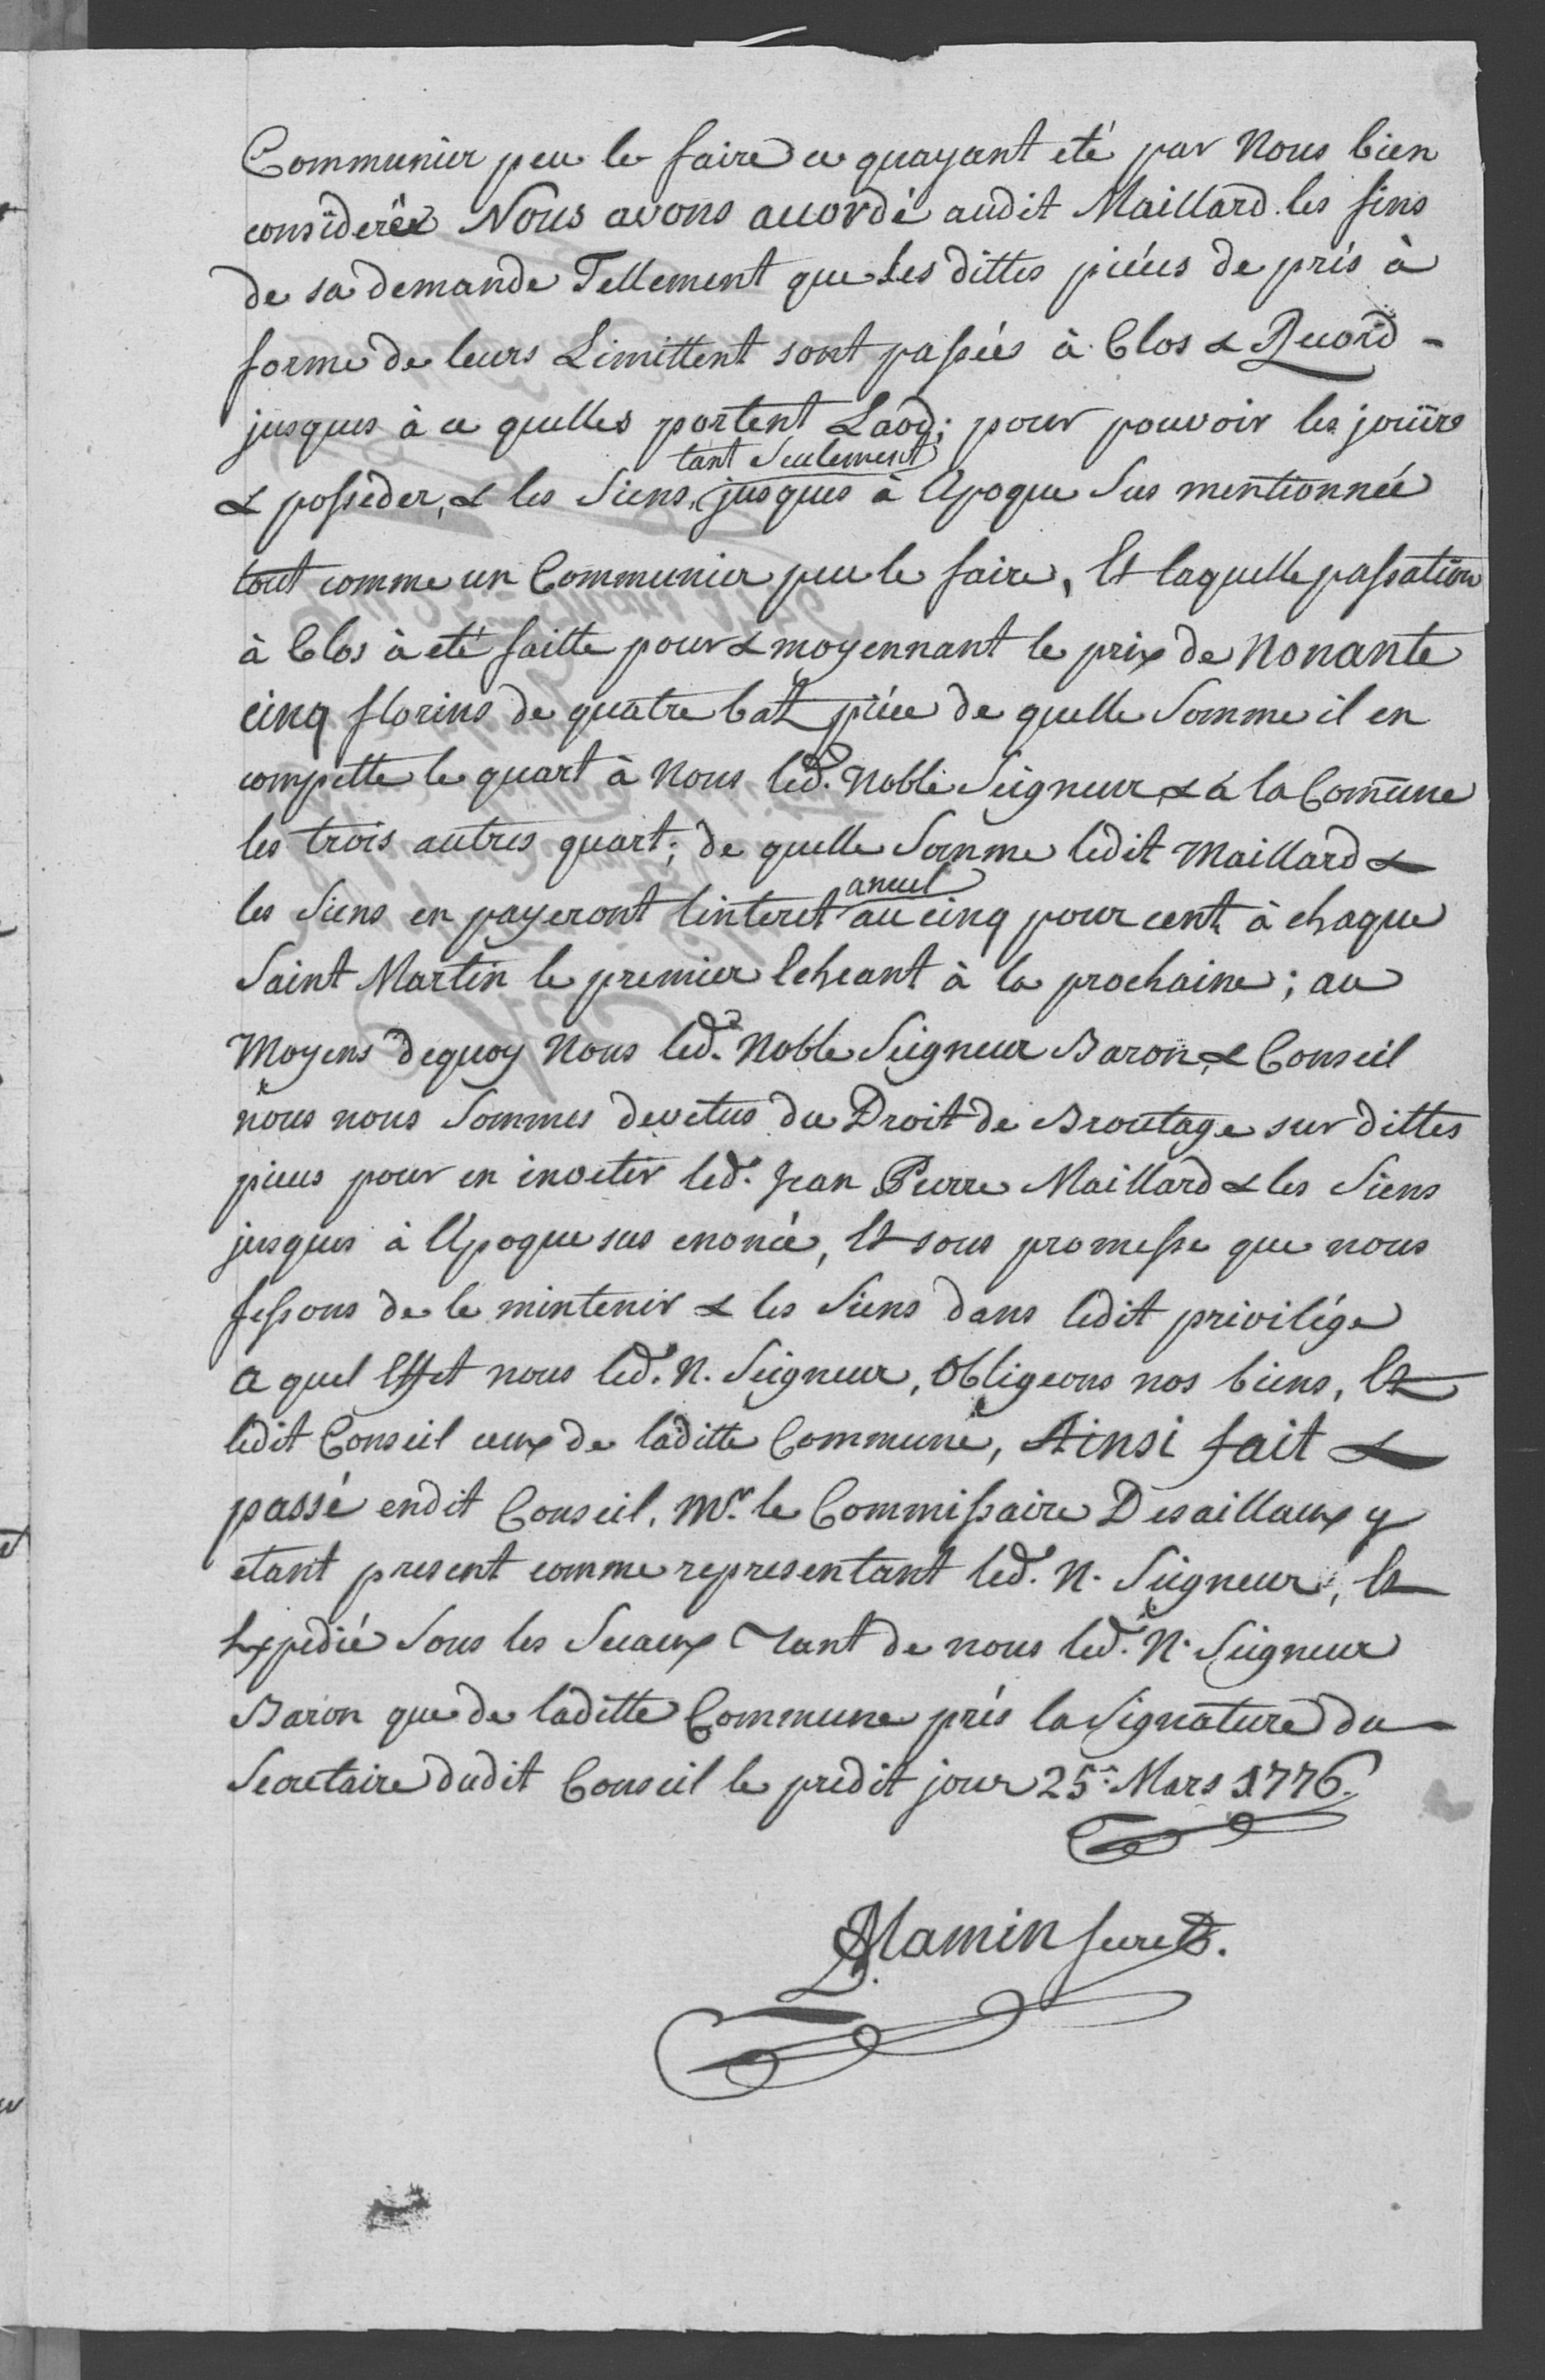 Communier peu le faire ce quayant eté par Nous bien
considerée Nous avons accordé audit Maillard les fins
de sa demande Tellement que Les dittes piéces de prés à
forme de leurs Limittent sont passées à Clos & Record -
jusques à ce quelles portent Laod; pour pouvoir les joüire
tant Seulement
& posséder, & les Siens, jusques à lEpoque Sus mentionnée
tout comme un Communier peu le faire, Et laquelle passation
à Clos à eté faitte pour & moyennant le prix de Nonante
cinq florins de quatre batz piéce de quelle Somme il en
compette le quart à Nous led. Noble Seigneur & à la Comune
les trois autres quart; de quelle Somme ledit Maillard &
anuel
les Siens en payeront linteret au cinq pour cent à chaque
Saint Martin le premier Echeant à la prochaine; au
Moyens dequoy Nous led. Noble Seigneur Baron & Conseil
nous nous Sommes devetus du Droit de Broutage sur dittes
pieces pour en invetir led. Jean Pierre Maillard & les Siens
jusques à lEpoque sus enoncée, Et sous promesse que nous
fessons de le mintenir & les Siens dans ledit privilége
a quel Effet nous led. N. Seigneur, Obligeons nos biens, Et
ledit Conseil ceux de laditte Commune, Ainsi fait &
passé endit Conseil, Mr. le Commissaire Desaillaux y
etant present comme representant led. N. Seigneur, Et
Expedié Sous les Sceaux Tant de nous led. N. Seigneur
Baron que de laditte Commune prés la Signature du
Secretaire dudit Conseil le predit jour 25e Mars 1776.
Mamin secret.